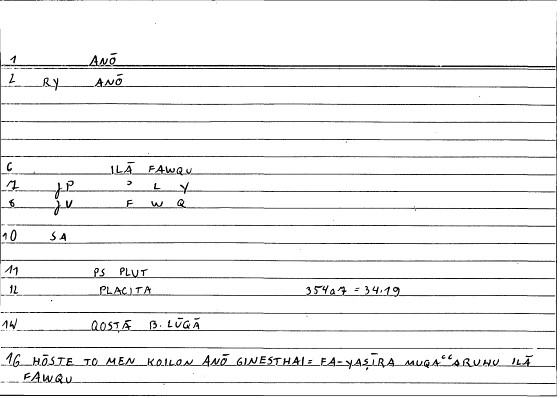 1 ANŌ
2 RY ANŌ
6 ILĀ FAWQU
7 JP ʾ L Y
8 JV F W Q
10 SA
11 PS PLUT
12 PLACITA 354a7 = 34.19
14 QOSṬĀ B. LŪQĀ
16 HŌSTE TO MEN KOILON ANŌ GINESTHAI = FA-YAṢĪRA MUQAʿʿARUHU ILĀ
FAWQU